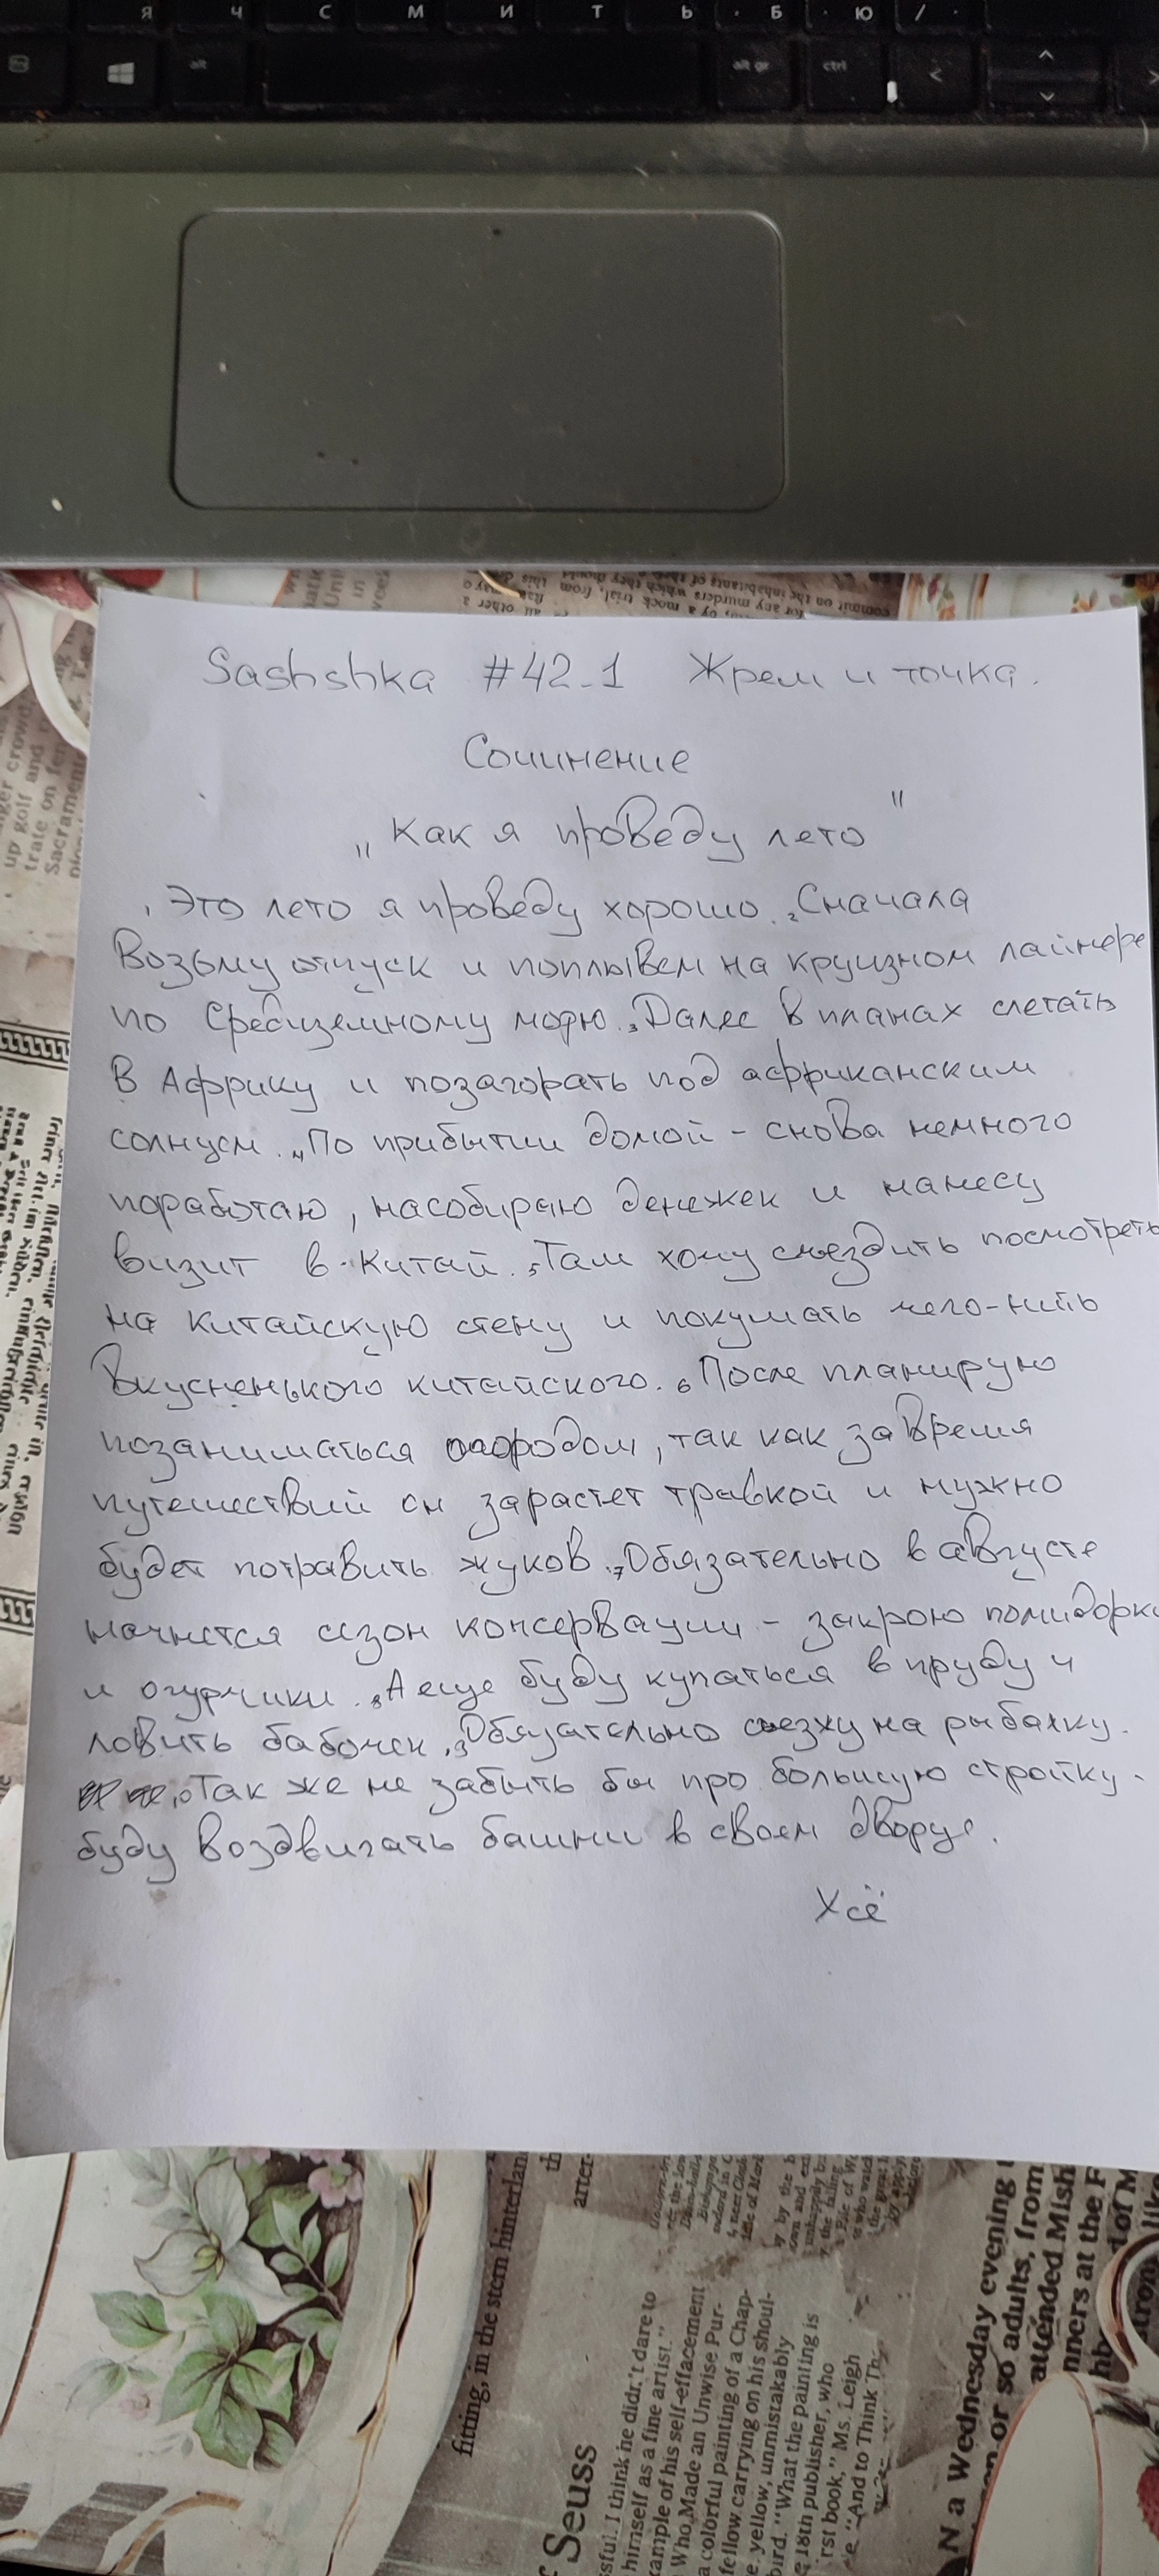 я ч с м и т ь б ю / .
alt alt gr ctrl <
Sashshka #42-1 Жрем и точка.
Сочинение
„Как я проведу лето"
₁Это лето я проведу хорошо.₂Сначала
возьму отпуск и поплывем на круизном лайнере
по Средиземному морю.₃Далее в планах слетать
в Африку и позагорать под африканским
солнцем.₄По прибытии домой - снова немного
поработаю, насобираю денежек и нанесу
визит в Китай.₅Там хочу съездить посмотреть
на китайскую стену и покушать чего-нить
вкусненького китайского.₆После планирую
позаниматься огородом, так как за время
путешествий он зарастет травкой и нужно
будет потравить жуков.₇Обязательно в августе
начнется сезон консервации - закрою помидорки
и огурчики.₈А еще буду купаться в пруду и
ловить бабочек.₉Обязательно съезжу на рыбалку.
₁₀Так же не забыть бы про большую стройку -
буду воздвигать башни в своем дворце.
Хсё
fitting, in the stern hinterlan
Seuss
ssful. I think he didn't dare to
himself as a fine artist."
xample of his self-effacement
Who Made an Unwise Pur-
a colorful painting of a Chap-
fellow carrying on his shoul-
e yellow, unmistakably
bird. "What the painting is
e 18th publisher, who
rst book," Ms. Leigh
e. "And to Think Th
N a Wednesday evening
or so adults, from
attended Mish
nners at the F